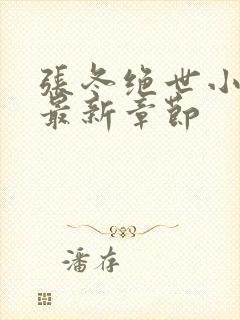 張冬绝世小
最新章節
潘存